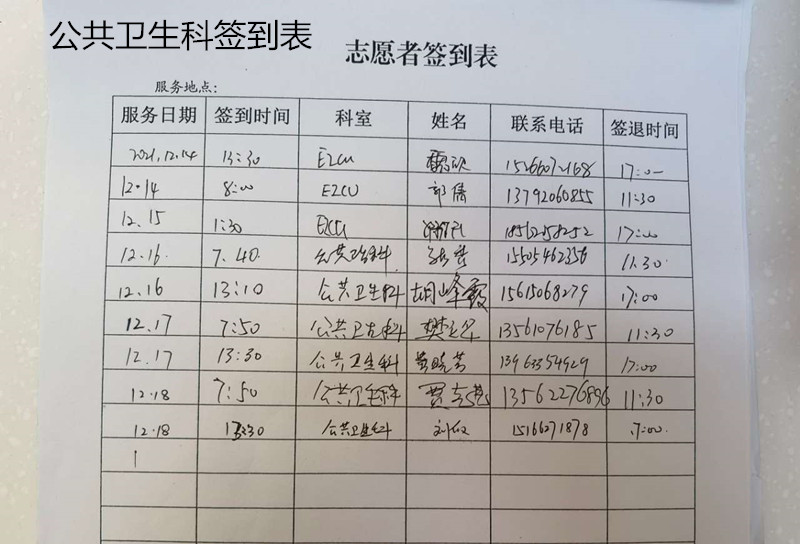 公共卫生科签到表
志愿者签到表
服务地点：
服务日期 签到时间 科室 姓名 联系电话 签退时间
2021.12.14 13:30 EICU 15266072168 17:00
12.14 8:00 EICU 郭倩 13792060855 11:30
12.15 1:30 EICU 18562258252 17:00
12.16. 7.40 公共卫生科 15505462356 11.30
12.16 13:10 公共卫生科 胡峰霞 15615068279 17:00
12.17 7:50 公共卫生科 13561076185 11:30
12.17 13:30 公共卫生科 黄晓芳 13963354929 17:00
12.18 7:50 公共卫生科 13562276896 11:30
12.18 13:30 公共卫生科 15166271878 17:00
1